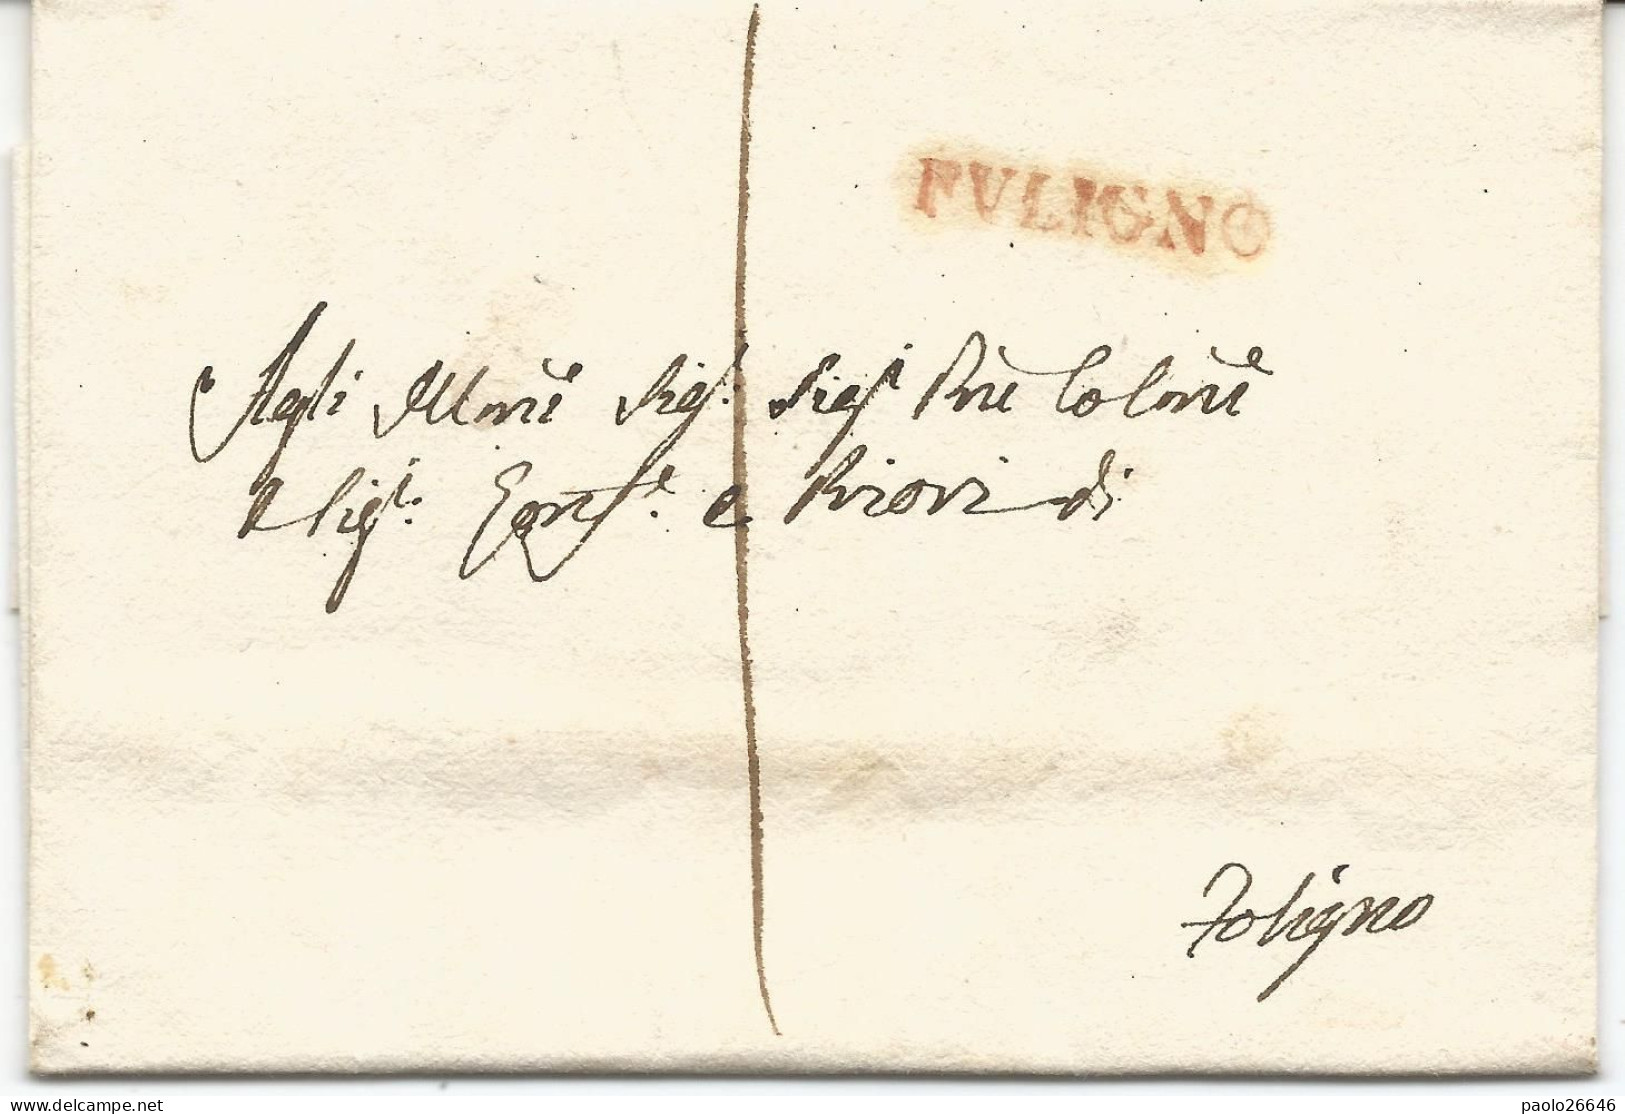 FVLIGNO
Agli Illmi Sigi. Sigi Pni Colmi
Sigi. Gonfe. e Priori di
Foligno
www.delcampe.net
paolo26646